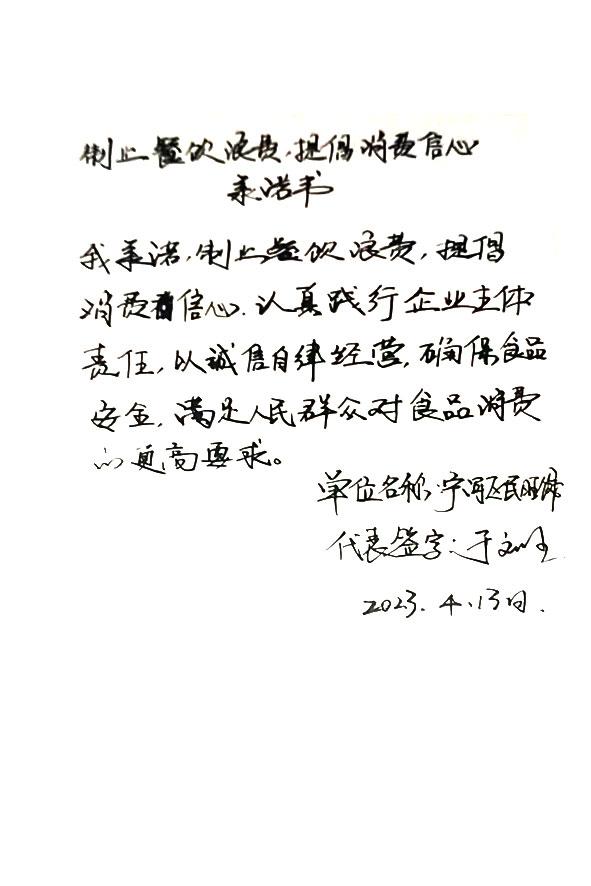 制止餐饮浪费,提倡消费信心
承诺书
我承诺,制止餐饮浪费,提倡
消费信心.认真践行企业主体
责任,以诚信自律经营,确保食品
安全,满足人民群众对食品消费
的更高要求。
单位名称:宁河区民旺
代表签字:于文
2023.4.13日.